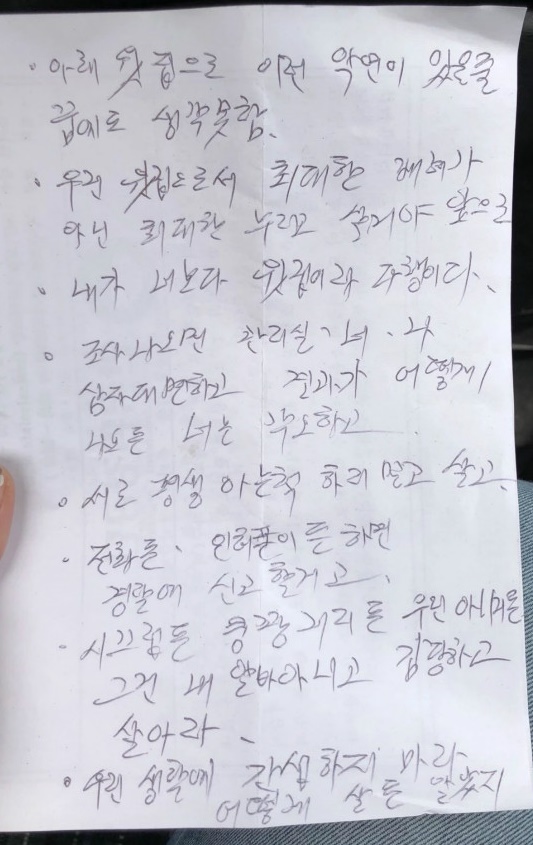 · 아래 윗집으로 이런 악연이 있을줄
꿈에도 생각못함.
· 우린 윗집으로서 최대한 배려가
아닌 최대한 누리고 살거야 앞으로
· 내가 너보다 윗집이라 다행이다.
· 조사나오면 관리실·너·나
삼자대면하고 결과가 어떻게
나오든 너는 부도하고
· 서로 평생 아는척 하지 말고 살고.
· 전화든. 인터폰이든 하면
경찰에 신고할거고.
· 시끄럽든 쿵쾅거리든 우린 아니며
그건 내 알바아니고 감당하고
살아라.
· 우린 생활에 간섭하지 마라
어떻게 살든 말든지